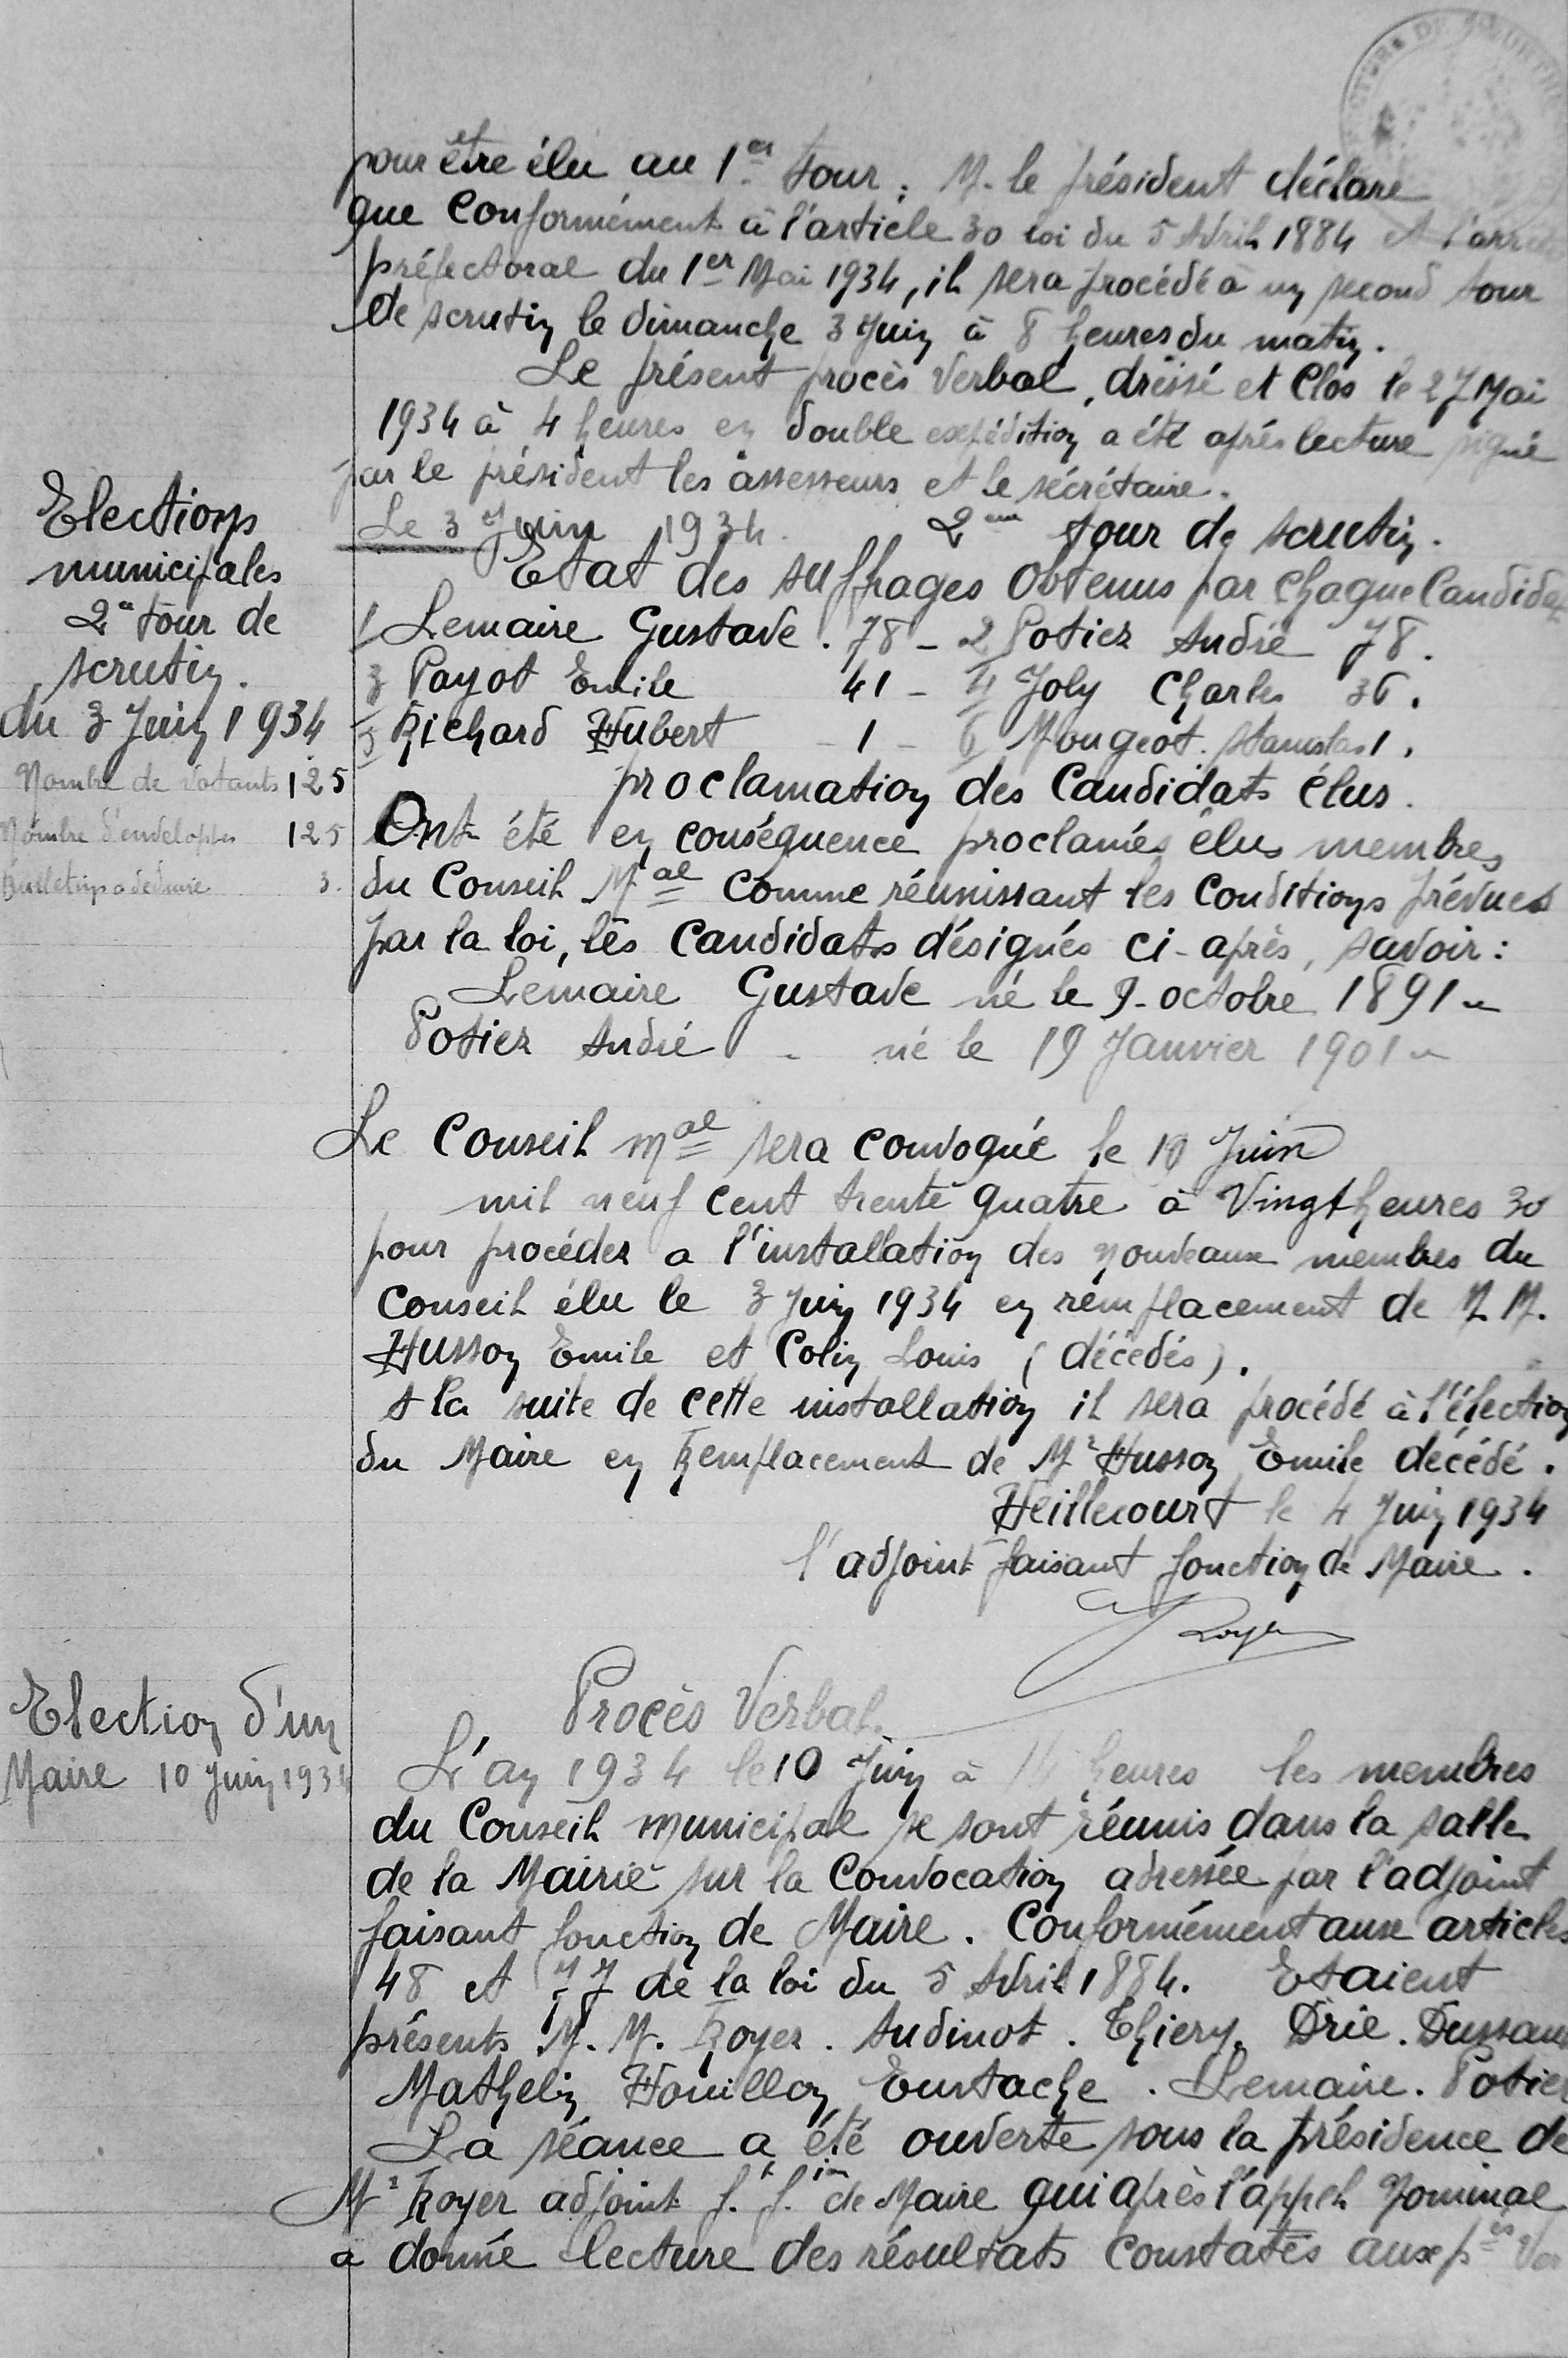 pour être élu au 1er tour ; M. le président déclare
que Conformément à l'article 30 loi du 5 Avril 1884 et l'arrêté
préfectoral du 1er Mai 1934, il sera procédé à un second tour
de scrutin le dimanche 3 Juin à 8 heures du matin.
Le présent procès Verbal, dressé et Clos le 27 Mai
1934 à 4 heures en double expédition a été après lecture signé
par le président les assesseurs et le sécrétaire.
Elections
municipales
2e tour de
scrutin.
du 3 Juin 1934
Nombre de votants 125
Nombre d'enveloppes 125
Bulletins a déduire 3.
Le 3 Juin 1934. 2eme tour de scrutin.
Etat des suffrages obtenus par chaque Candidat
1 Lemaire Gustave. 78 - 2 Potier André 78.
3 Payot Emile 41 - 4 Joly Charles 36.
5 Richard Hubert - 1 - 6 Mougeot. Stanislas 1.
proclamation des Candidats élus.
Ont été en conséquence proclamés élus membres
du Conseil Mal Comme réunissant les Conditions prévues
par la loi, les Candidats désignés ci-après, savoir :
Lemaire Gustave né le 9. octobre 1891
Potier André - né le 19 Janvier 1901
Le Conseil mal sera Convoqué le 10 Juin
mil neuf cent trente quatre à Vingt heures 30
pour procéder a l'installation des nouveaux membres du
Conseil élu le 3 Juin 1934 en remplacement de M M.
Husson Emile et Colin Louis (décédés).
A la suite de cette installation il sera procédé à l'élection
du Maire en Remplacement de Mr Husson Emile décédé.
Heillecourt le 4 Juin 1934
l'adjoint faisant fonction de Maire.
Royer
Election d'un
Maire 10 Juin 1934
Procès Verbal.
L'an 1934 le 10 Juin à 14 heures les membres
du Conseil municipal se sont réunis dans la salle
de la Mairie sur la Convocation adressée par l'adjoint
faisant fonction de Maire. Conformément aux articles
48 et 77 de la loi du 5 Avril 1884. Etaient
présents M. M. Royer. Audinot. Thiery. Drie.
Mathelin Houillon Eustache. Lemaire. Potier
La séance a été ouverte sous la présidence de
Mr Royer adjoint f. f. ion de Maire qui après l'appel Nominal
a donné lecture des résultats constatés aux pès Ver